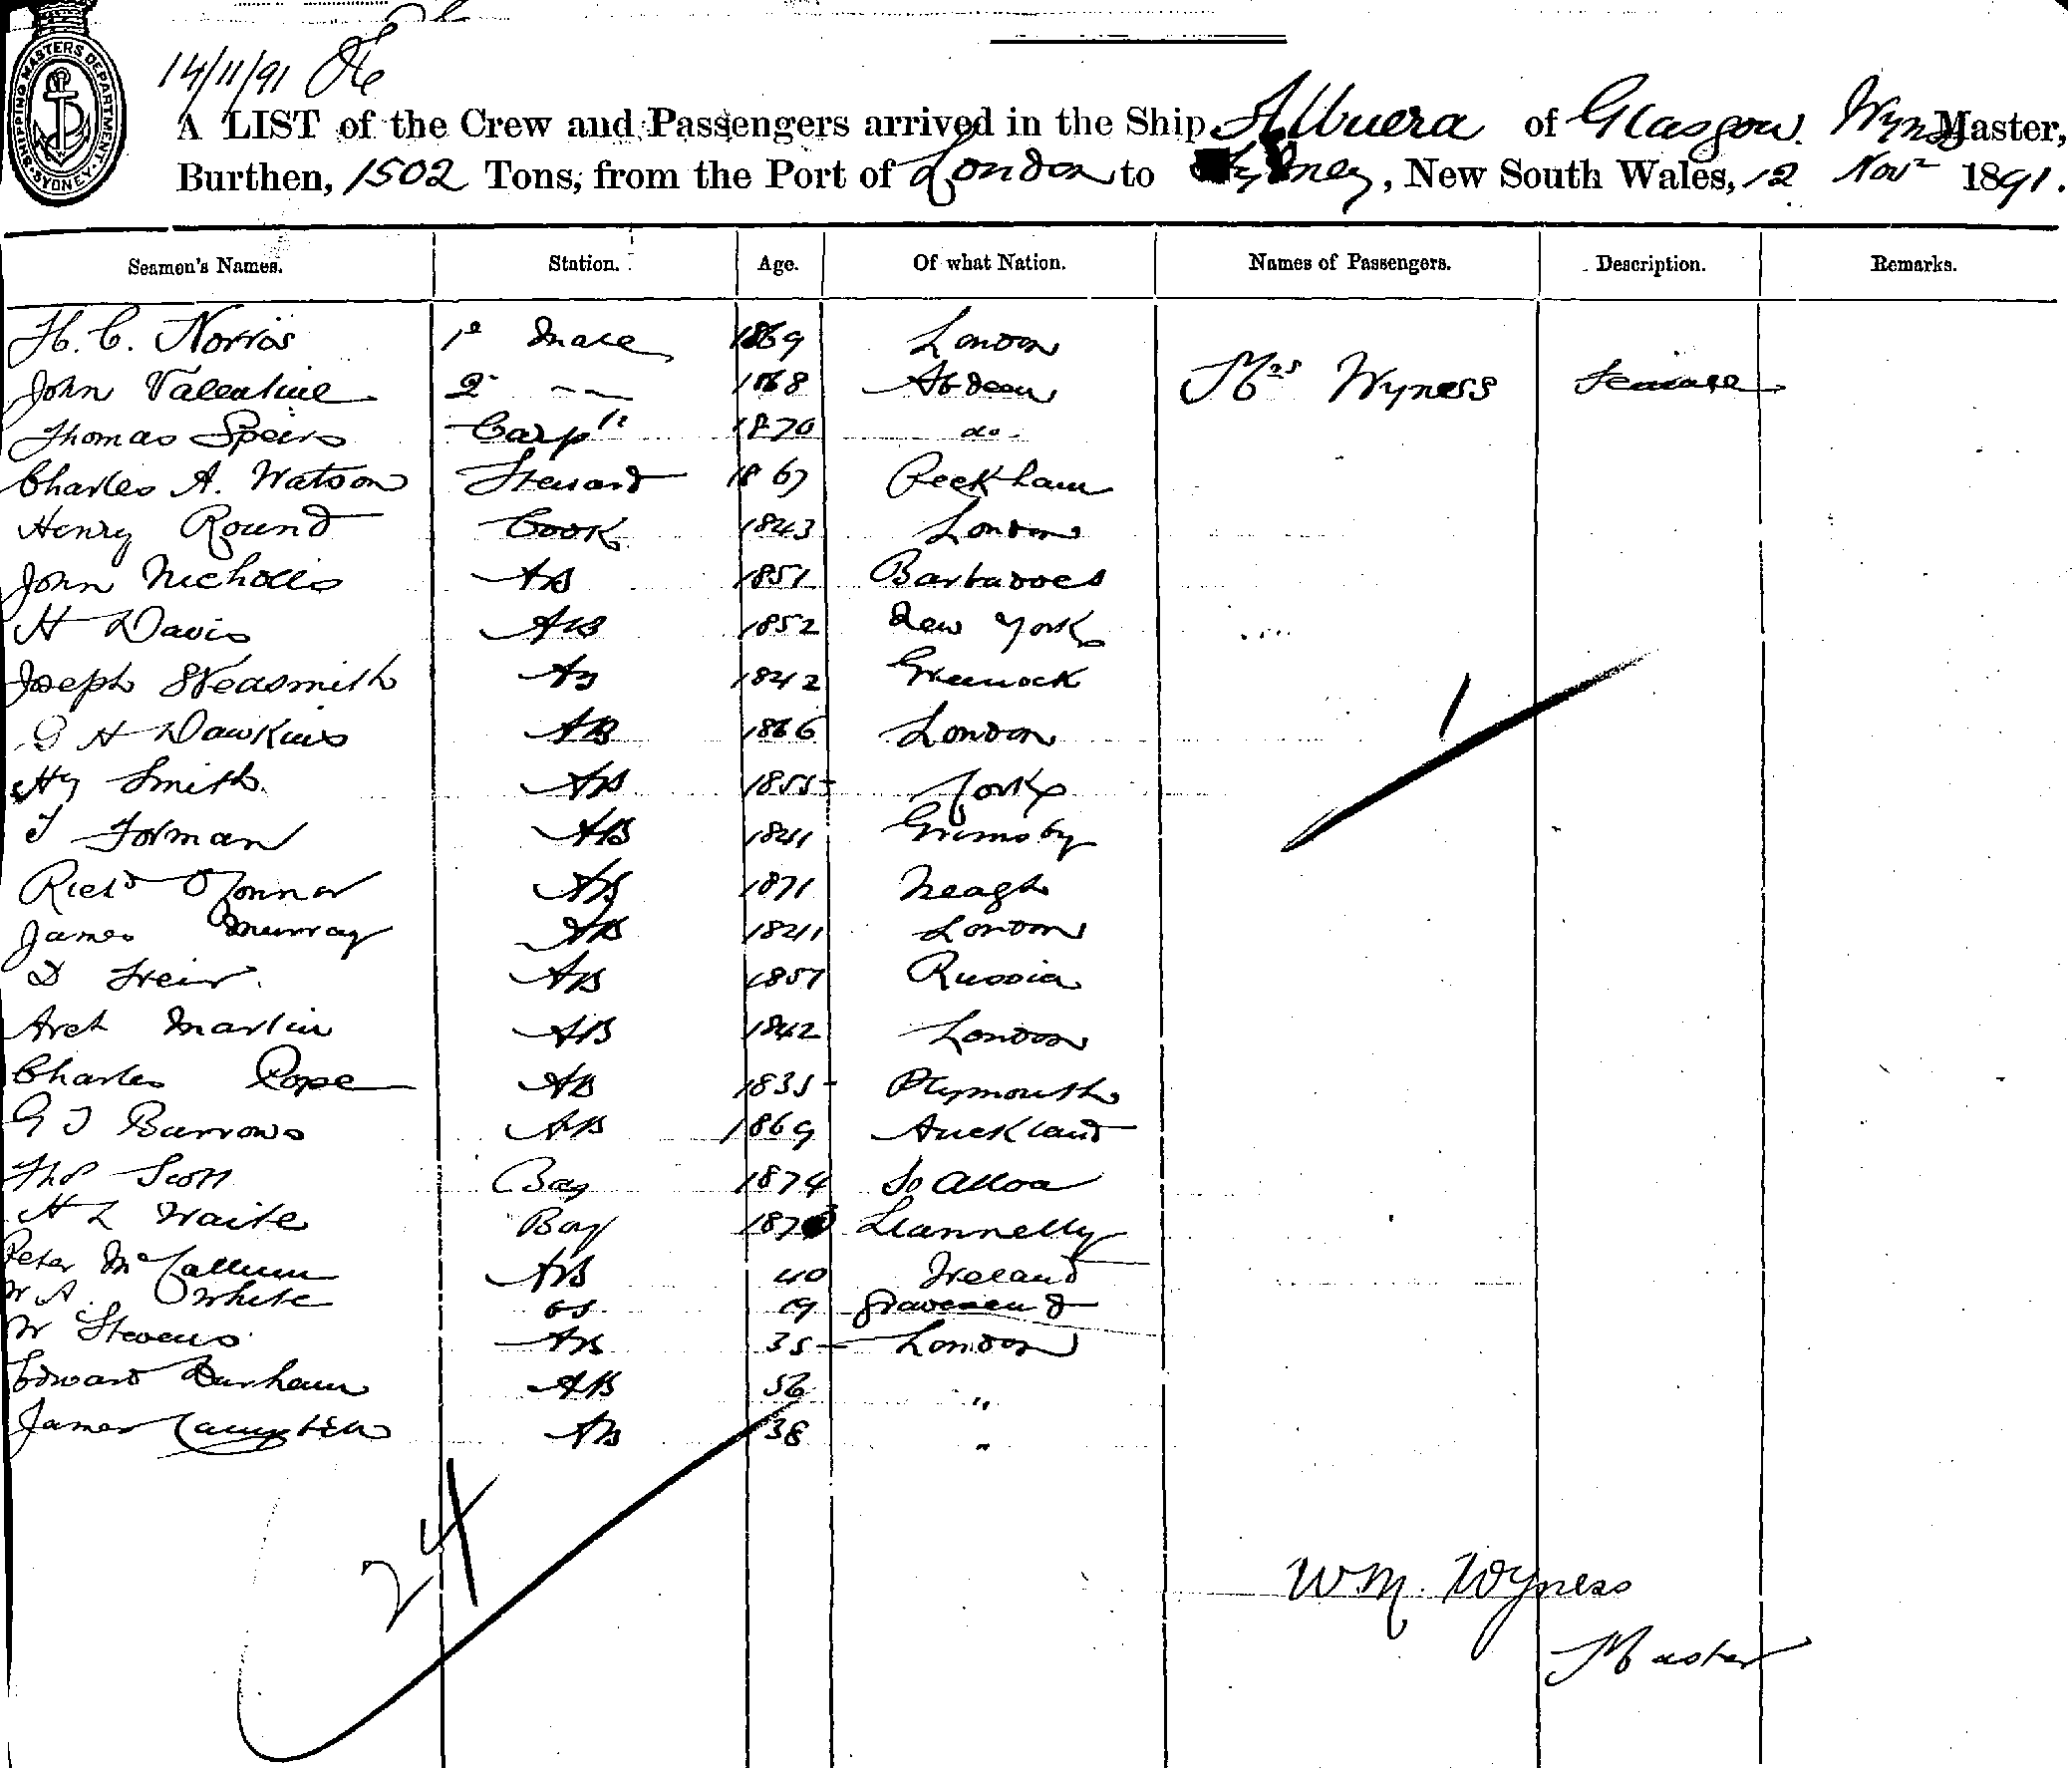 SHIPPING MASTERS DEPARTMENT. SYDNEY.
14/11/91
A LIST of the Crew and Passengers arrived in the Ship Albuera of Glasgow. Wyness Master,
Burthen, 1502 Tons, from the Port of London to Sydney, New South Wales, 12 Novr 1891.
Seamen's Names. Station. Age. Of what Nation. Names of Passengers. Description. Remarks.
H. C. Norris 1st Mate 1869 London
John Valentine 2 — 1868 Abdeen Mrs Wyness
Thomas Speirs Carptr 1870 do.
Charles A. Watson Steward 1867 Peckham
Henry Round Cook 1843 London
John Nicholls AB 1851 Barbadoes
H Davis AB 1852 New York
Joseph Neasmith AB 1842 Greenock
G H Dawkins AB 1866 London 1
Hy Smith AB 1855 York
T Forman AB 1841 Grimsby
Richd O'Connor AB 1871 Neagh
James Murray AB 1841 London
D Freir. AB 1857 Russia
Arch Martin AB 1842 London
Charles Pope AB 1835 Plymouth
G T Burrows AB 1869 Auckland
Thos Scott Boy 1874 So Alloa
H L Waite Boy Llannelly
Peter McCallum AB 40 Ireland
W A. White OS 19 Gravesend
W Stevens AB 35 London
Edward Durham AB 56 "
James Campbell AB 38 "
24
Wm. Wyness
Master